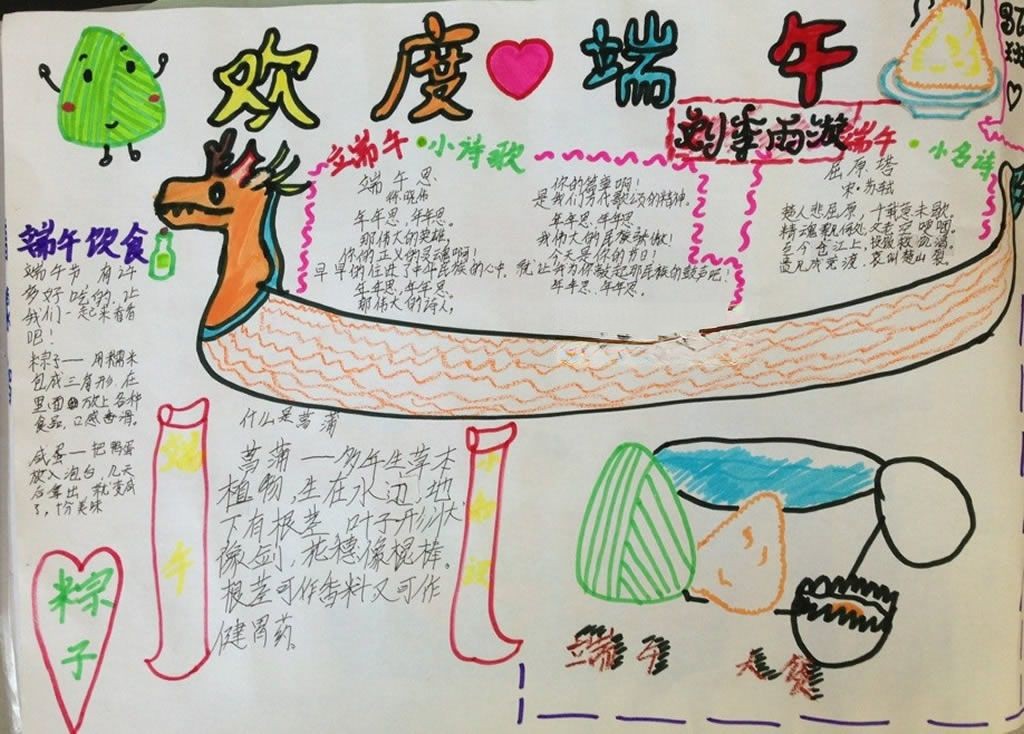 欢度端午
班
端午·小诗歌
端午·小名诗
端午思
年年思，年年思。
那伟大的英雄，
你的正义的灵魂啊！
早早的住进了中华民族的心中，
年年思，年年思。
那伟大的诗人，
你的简单啊！
是我们万代歌颂的精神。
年年思，年年思。
我伟大的民族骄傲！
今天是你的节日！
就让
年年思，年年思。
屈原塔
宋·苏轼
楚人悲屈原，千载意未歇。
精魂飘何处，父老空哽咽。
至今仓江上，投饭救饥渴。
遗风成竞渡，哀叫楚山裂。
端午饮食
端午节，有许
多好吃的，让
我们一起来看看
吧！
粽子——用糯米
包成三角形，在
里面放上各种
食品，口感香滑。
咸蛋——把鸭蛋
放入泡台，几天
后拿出，就变成
了，十分美味
粽子
端午
小知识
什么是菖蒲
菖蒲——多年生草本
植物，生在水边，地
下有根茎，叶子形状
像剑，花穗像棍棒。
根茎可作香料又可作
健胃药。
端午大餐